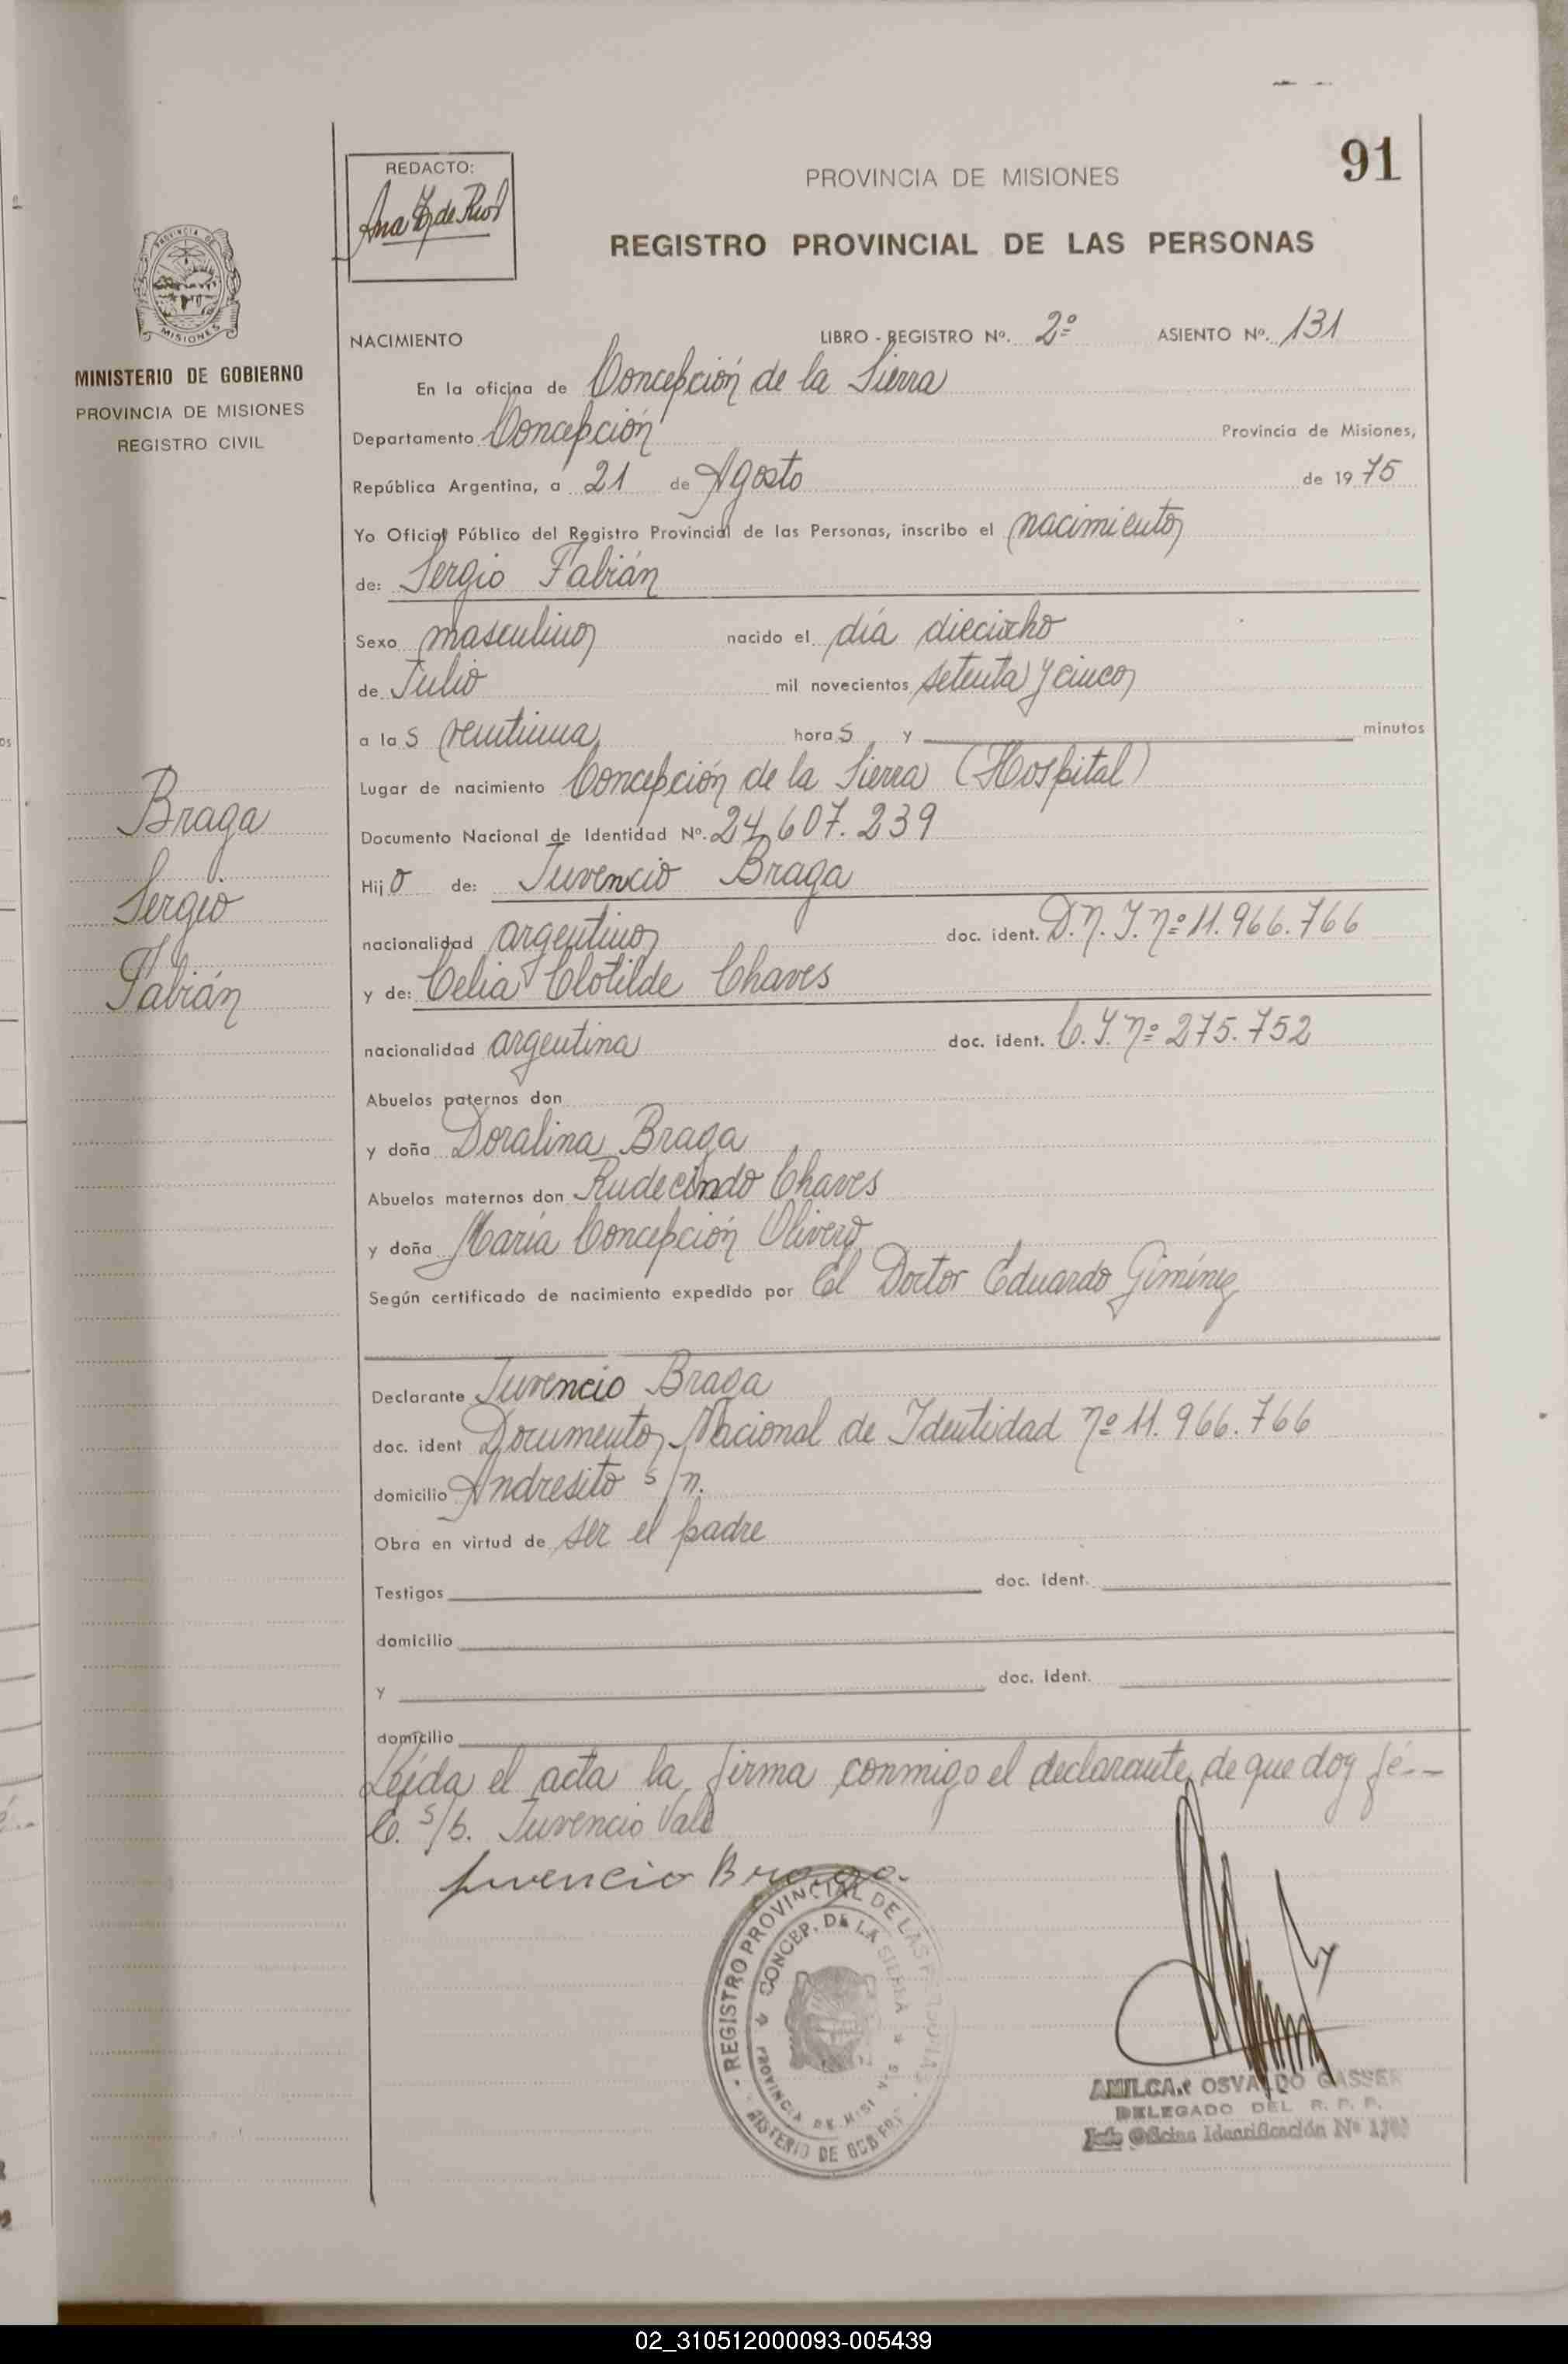 91
REDACTO:
Ana
de Rios
PROVINCIA DE MISIONES
REGISTRO PROVINCIAL DE LAS PERSONAS
PROVINCIA DE
MISIONES
MINISTERIO DE GOBIERNO
PROVINCIA DE MISIONES
REGISTRO CIVIL
NACIMIENTO LIBRO - REGISTRO Nº. 2º ASIENTO Nº. 131
En la oficina de Concepción de la Sierra
Departamento Concepción Provincia de Misiones,
República Argentina, a 21 de Agosto de 1975
Yo Oficial Público del Registro Provincial de las Personas, inscribo el nacimiento
de: Sergio Fabián
Sexo masculino nacido el día dieciocho
de Julio mil novecientos setenta y cinco
a las veintiuna horas y minutos
Lugar de nacimiento Concepción de la Sierra (Hospital)
Documento Nacional de Identidad Nº. 24.607.239
Hijo de: Juvencio Braga
nacionalidad argentino doc. ident. D.N.I. nº 11.966.766
y de: Celia Clotilde Chaves
nacionalidad argentina doc. ident. C.I. nº 275.752
Abuelos paternos don
y doña Doralina Braga
Abuelos maternos don Rudecindo Chaves
y doña María Concepción Olivera
Según certificado de nacimiento expedido por El Doctor Eduardo Giménez
Declarante Juvencio Braga
doc. ident Documento Nacional de Identidad nº 11.966.766
domicilio Andresito s/n.
Obra en virtud de ser el padre
Testigos doc. ident.
domicilio
y doc. ident.
domicilio
Leída el acta la firma conmigo el declarante, de que doy fé.--
C. s/b. Juvencio Vale
Juvencio Braga.
Braga
Sergio
Fabián
REGISTRO PROVINCIAL DE LAS PERSONAS
CONCEP. DE LA SIERRA
PROVINCIA DE MISIONES
MINISTERIO DE GOBIERNO
AMILCAR OSVALDO GASSER
DELEGADO DEL R. P. P.
Jefe Oficina Identificación Nº
02_310512000093-005439